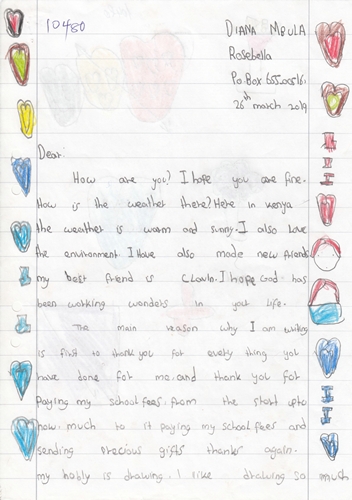 10480
DIANA MBULA
Rosebella
Po.Box
26th march 2019
Dear:
How are you? I hope you are fine.
How is the weather there? Here in kenya
the weather is warm and sunny. I also love
the environment. I Have also made new friends
my best friend is I hope God has
been working wonders in your life.
The main reason why I am writing
is first to thank you for every thing you
have done for me. and thank you for
Paying my school fees. from the start upto
now. much to it paying my school fees and
sending Precious gifts thanks again.
my hobly is drawing. I like drawing so much